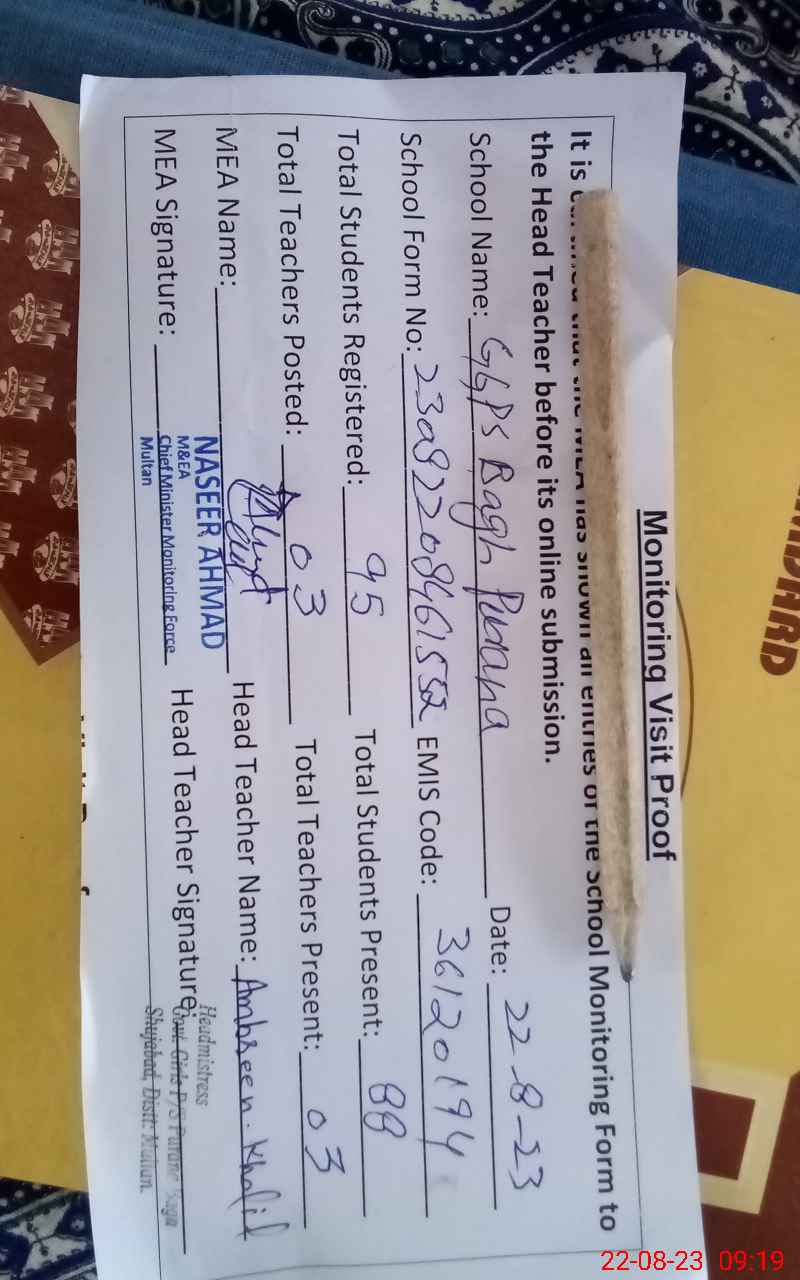 Monitoring Visit Proof
It is that the MEA has shown all entries of the School Monitoring Form to
the Head Teacher before its online submission.
School Name: GGPS Bagh Purana Date: 22-8-23
School Form No: EMIS Code: 36120194
Total Students Registered: 95 Total Students Present: 88
Total Teachers Posted: 03 Total Teachers Present: 03
MEA Name: Head Teacher Name: Ambreen. Khalid
NASEER AHMAD
M&EA
Chief Minister Monitoring Force
Multan
MEA Signature: Head Teacher Signature:
Headmistress
Govt. Girls P/S Purana Baga
Shujabad, Distt: Multan.
NDARD
22-08-23 09:19